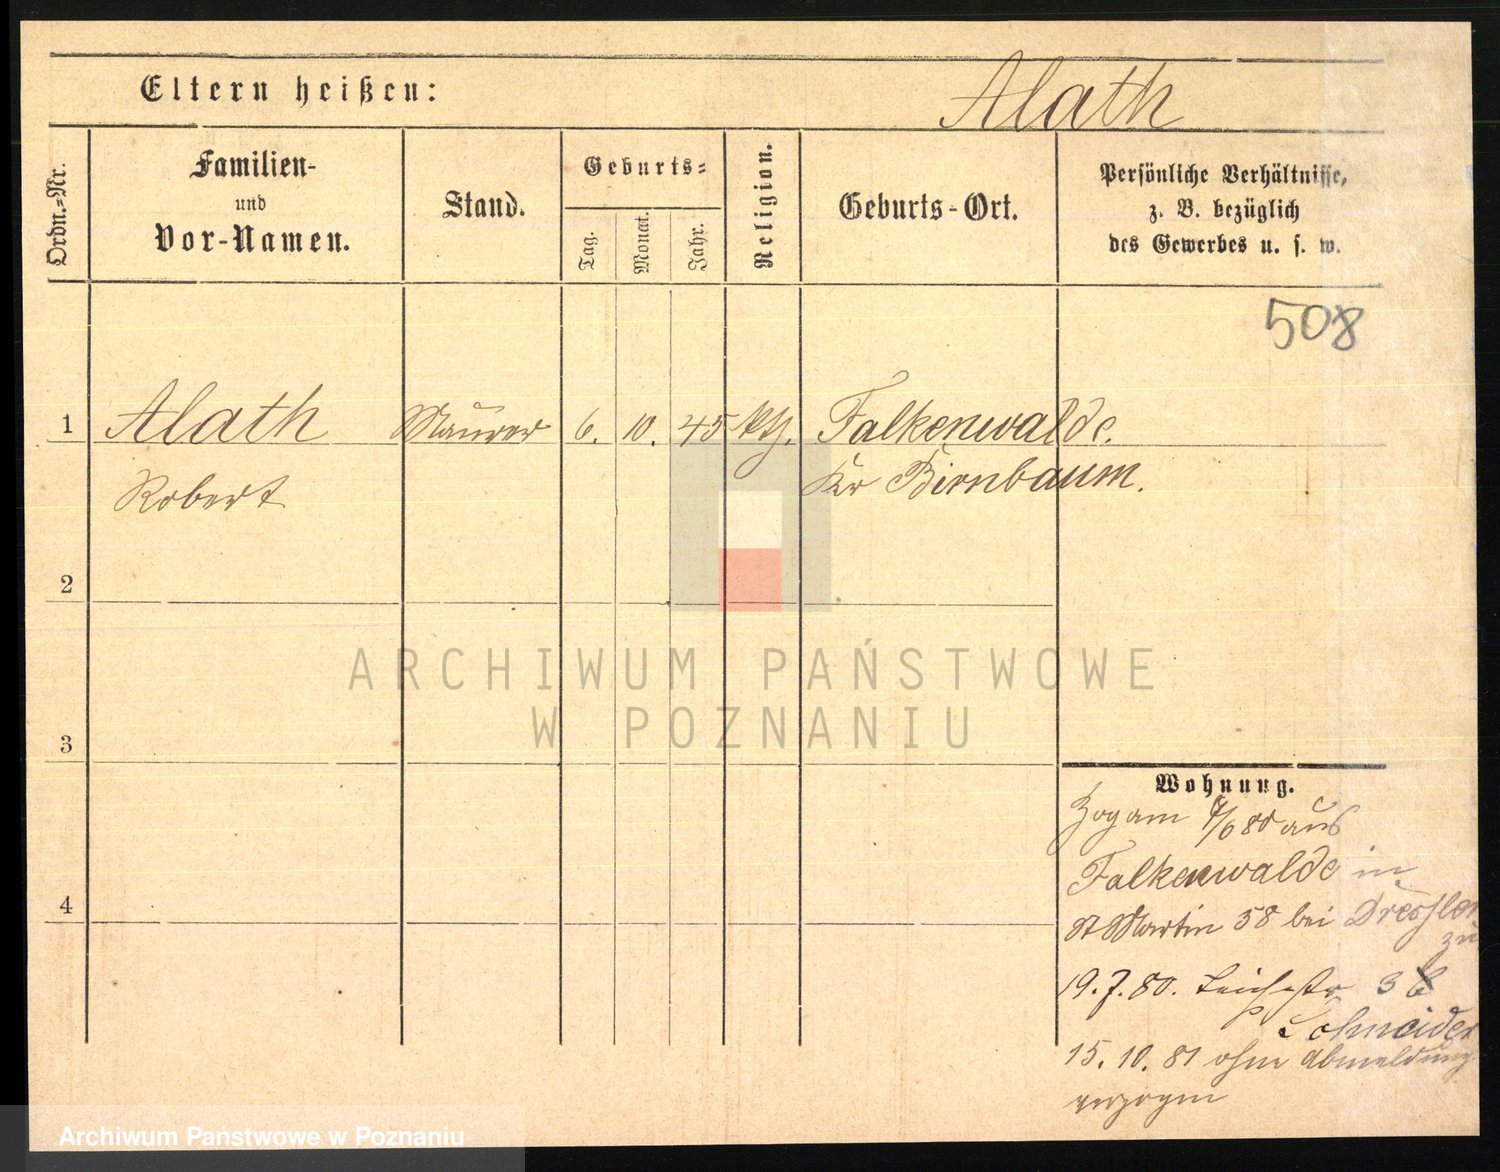 Eltern heißen: Alath
Ordn.-Nr.
Familien-
und
Vor-Namen.
Stand.
Geburts-
Tag.
Monat.
Jahr.
Religion.
Geburts-Ort.
Persönliche Verhältnisse,
z. B. bezüglich
des Gewerbes u. s. w.
508
1 Alath Maurer 6. 10. 45 kth. Falkenwalde.
Robert Kr Birnbaum.
2
3
4
Wohnung.
Zog am 80 aus
Falkenwalde in
St Martin 58 bei Dressler
zu
19.7.80. 3
Schneider
15. 10. 81 ohne Abmeldung
verzogen
ARCHIWUM PAŃSTWOWE
W POZNANIU
Archiwum Państwowe w Poznaniu